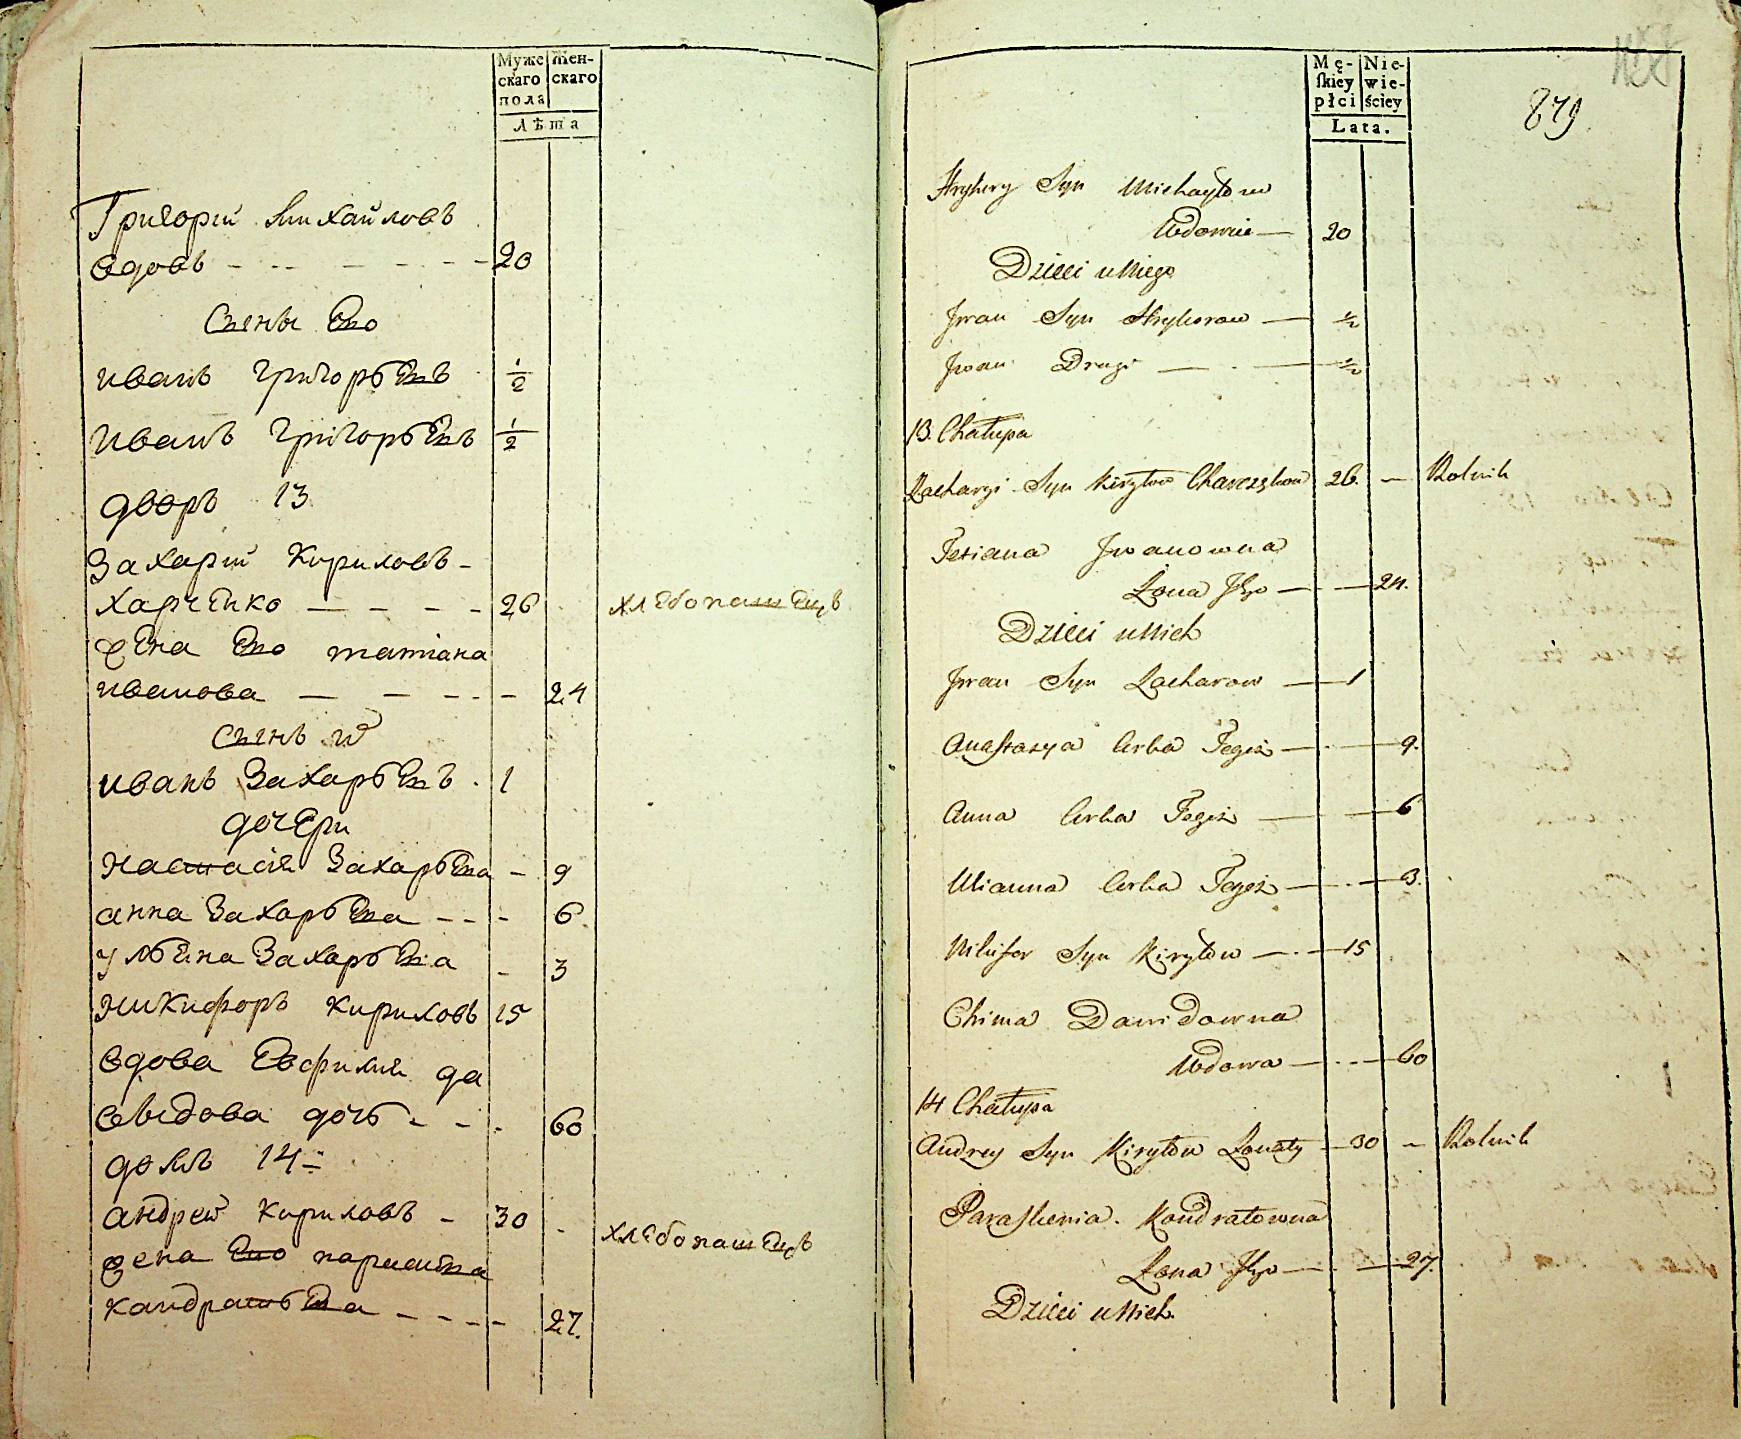 Муже
скаго
пола
Жен-
скаго
Лѣта
Григорий Михайловъ
вдовъ - - - - - - - 20
Сыны Его
иванъ григорьевъ 1/2
иванъ григорьевъ 1/2
дворъ 13
Захарий Кириловъ -
харченко - - - - 26 хлебопашецъ
жена Его татиана
иванова - - - - - 24
Сынъ их
иванъ Захарьевъ . 1
дочери
настасия Захарьева - 9
анна Захарьева - - - 6
ульяна Захарьева - 3
никифоръ кириловъ 15
вдова Евфимия да
выдова дочь - - . 60
домъ 14
андрей кириловъ - 30 - хлебопашецъ
жена Его
кандратьева - - - - - 27.
Mę-
ſkiey
płci
Nie-
wie-
ściey
Lata.
879
Hryhory Syn Michayłow
Wdowiec — 20
Dzieci u Niego
Jwan Syn Hryhorow — 1/2
Jwan Drugi — - — 1/2
13. Chałupa
Zachary Syn Kiryłow Charczękow 26. — Rolnik
Tetiana Jwanowna
Żona Jego — - — 24.
Dzieci u Nich
Jwan Syn Zacharow — 1
Anastazya Corka Tegoż — . — 9.
Anna Corka Tegoż — — 6
Ulianna Corka Tegoż — . . — 3.
Nikifor Syn Kiryłow — . — 15
Chima Dawidowna
Wdowa — . . . — 60
14 Chałupa
Andrey Syn Kiryłow — 30 — Rolnik
Paraſkewia. Kondratowna
Żona Jego — . — 27.
Dzieci u Nich.